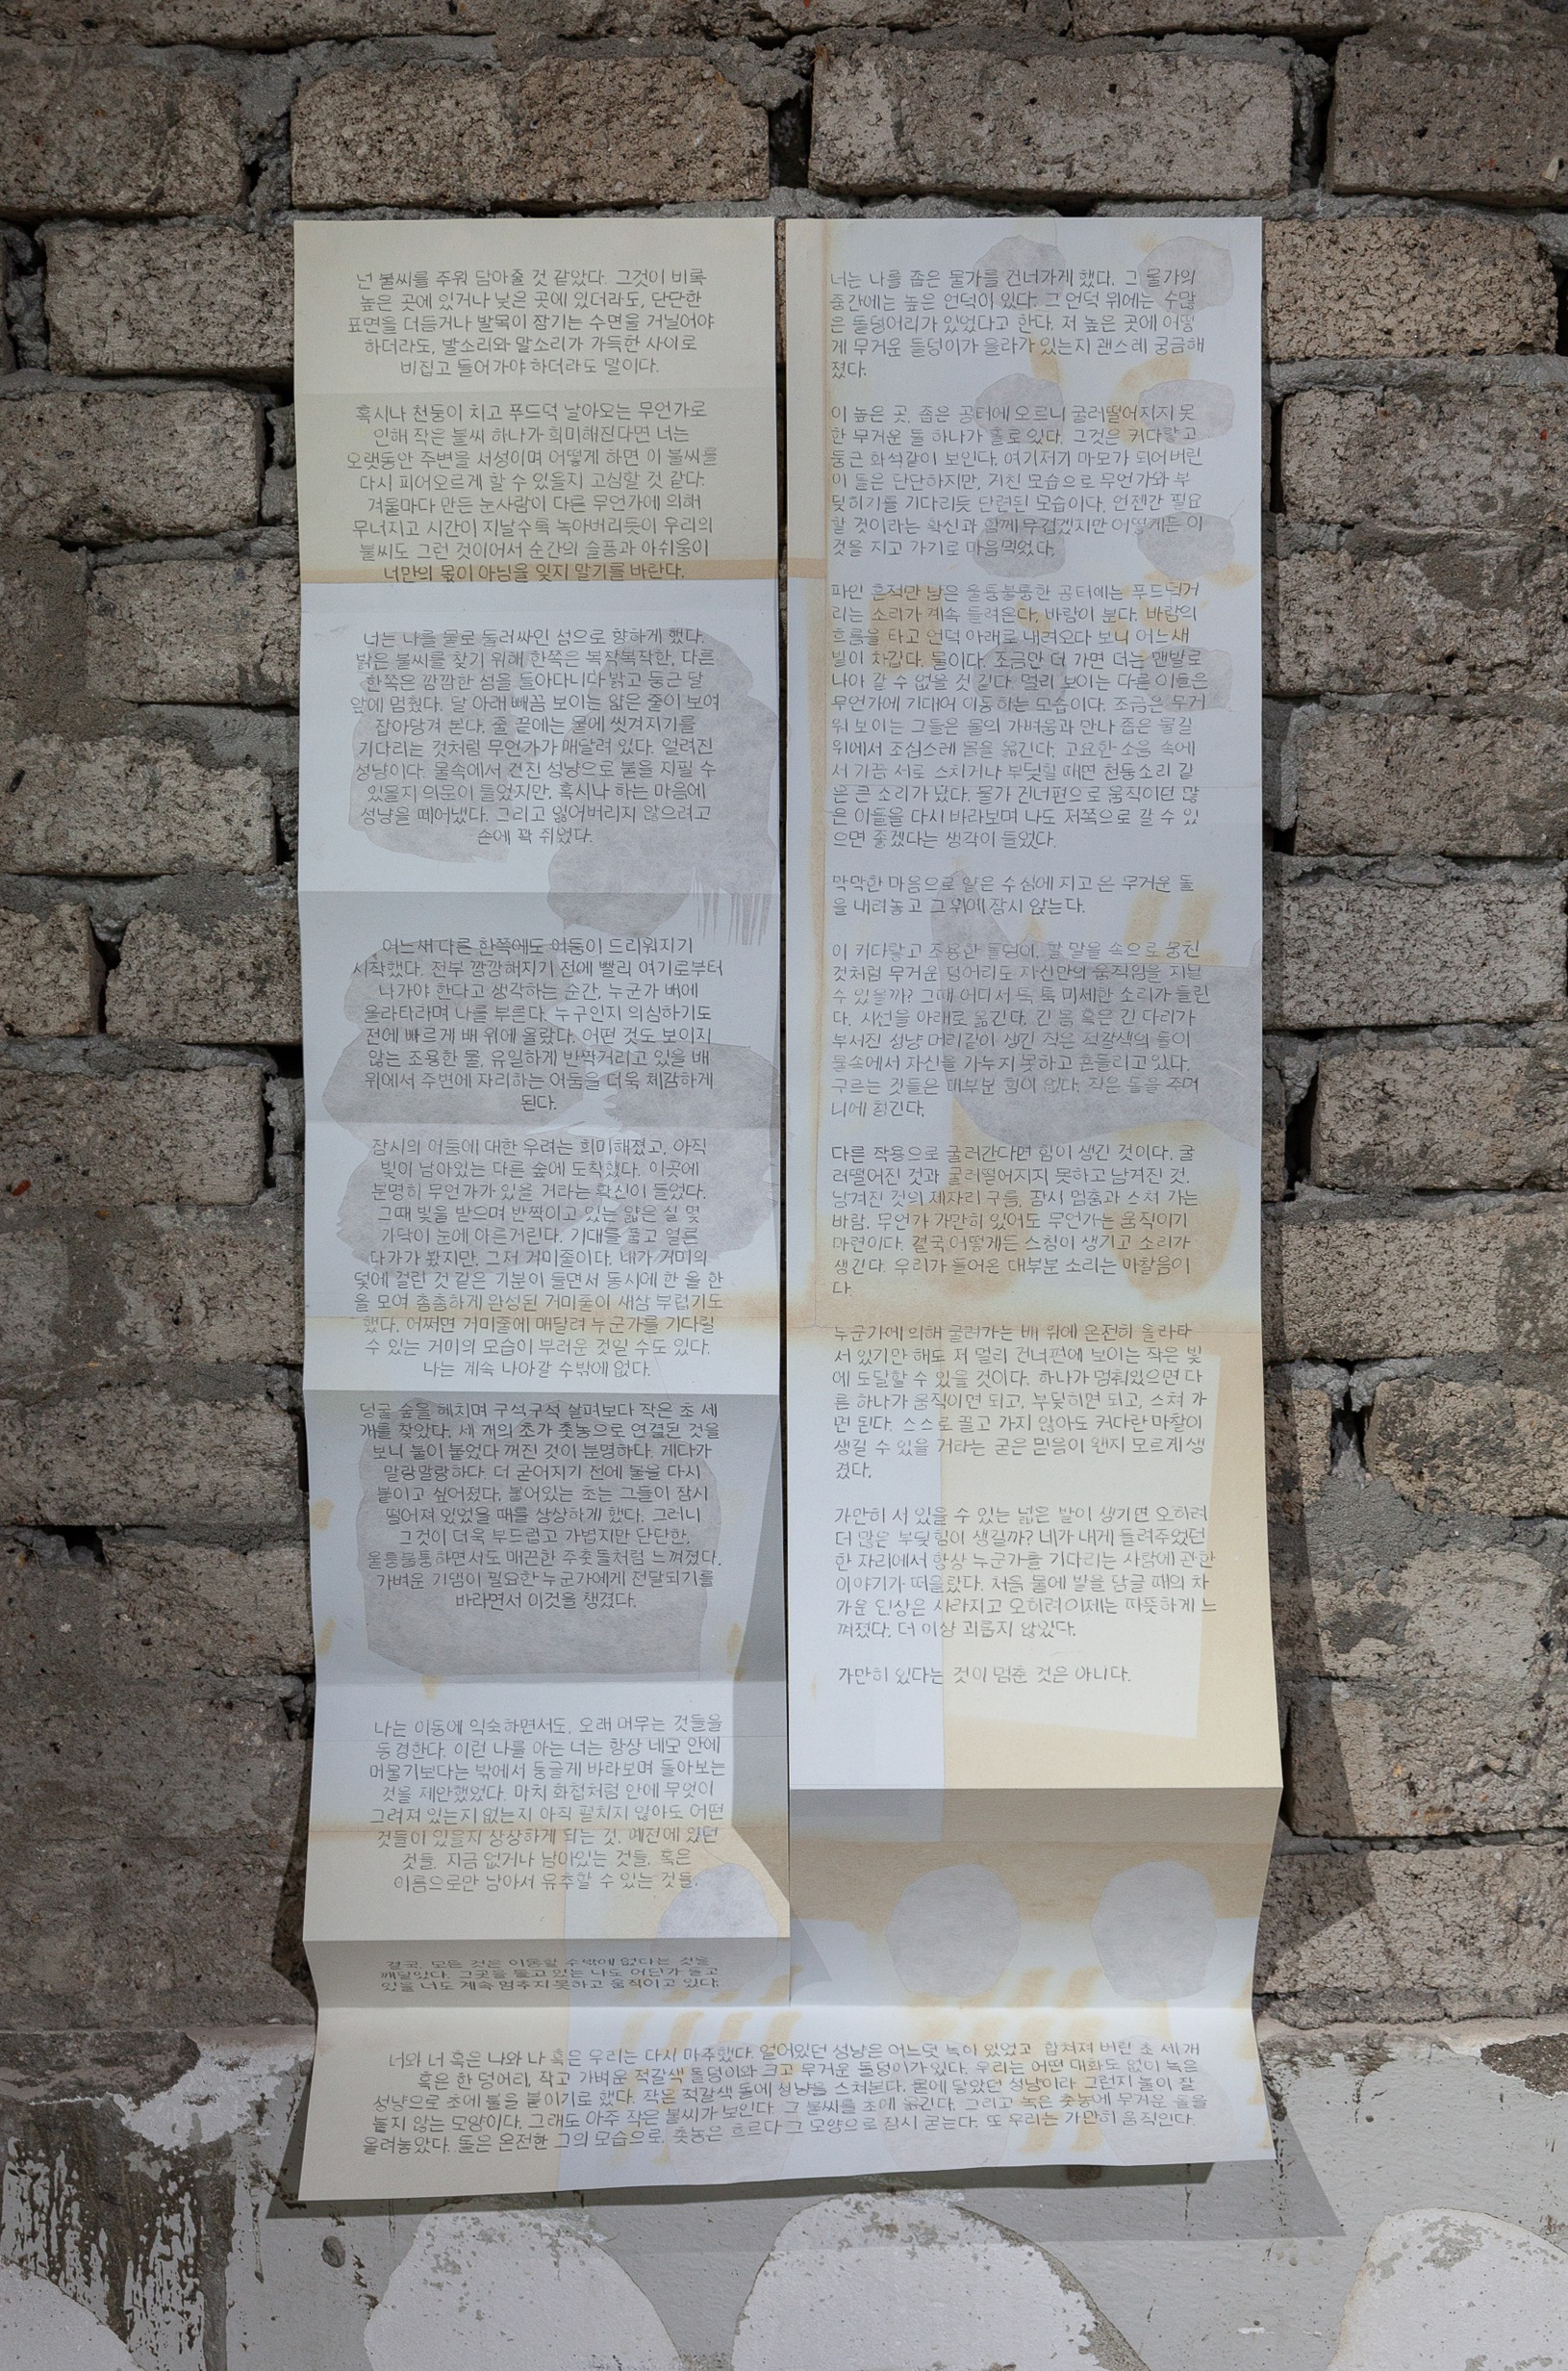 넌 불씨를 주워 담아줄 것 같았다. 그것이 비록
높은 곳에 있거나 낮은 곳에 있더라도, 단단한
표면을 더듬거나 발목이 잠기는 수면을 거닐어야
하더라도, 발소리와 말소리가 가득한 사이로
비집고 들어가야 하더라도 말이다.
혹시나 천둥이 치고 푸드덕 날아오는 무언가로
인해 작은 불씨 하나가 희미해진다면 너는
오랫동안 주변을 서성이며 어떻게 하면 이 불씨를
다시 피어오르게 할 수 있을지 고심할 것 같다.
겨울마다 만든 눈사람이 다른 무언가에 의해
무너지고 시간이 지날수록 녹아버리듯이 우리의
불씨도 그런 것이어서 순간의 슬픔과 아쉬움이
너만의 몫이 아님을 잊지 말기를 바란다.
너는 나를 물로 둘러싸인 섬으로 향하게 했다.
밝은 불씨를 찾기 위해 한쪽은 복작복작한, 다른
한쪽은 깜깜한 섬을 돌아다니다 밝고 둥근 달
앞에 멈췄다. 달 아래 빼꼼 보이는 얇은 줄이 보여
잡아당겨 본다. 줄 끝에는 물에 씻겨지기를
기다리는 것처럼 무언가가 매달려 있다. 얼려진
성냥이다. 물속에서 건진 성냥으로 불을 지필 수
있을지 의문이 들었지만, 혹시나 하는 마음에
성냥을 떼어냈다. 그리고 잃어버리지 않으려고
손에 꽉 쥐었다.
어느새 다른 한쪽에도 어둠이 드리워지기
시작했다. 전부 깜깜해지기 전에 빨리 여기로부터
나가야 한다고 생각하는 순간, 누군가 배에
올라타라며 나를 부른다. 누구인지 의심하기도
전에 빠르게 배 위에 올랐다. 어떤 것도 보이지
않는 조용한 물, 유일하게 반짝거리고 있을 배
위에서 주변에 자리하는 어둠을 더욱 체감하게
된다.
잠시의 어둠에 대한 우려는 희미해졌고, 아직
빛이 남아있는 다른 숲에 도착했다. 이곳에
분명히 무언가가 있을 거라는 확신이 들었다.
그때 빛을 받으며 반짝이고 있는 얇은 실 몇
가닥이 눈에 아른거린다. 기대를 품고 얼른
다가가 봤지만, 그저 거미줄이다. 내가 거미의
덫에 걸린 것 같은 기분이 들면서 동시에 한 올 한
올 모여 촘촘하게 완성된 거미줄이 새삼 부럽기도
했다. 어쩌면 거미줄에 매달려 누군가를 기다릴
수 있는 거미의 모습이 부러운 것일 수도 있다.
나는 계속 나아갈 수밖에 없다.
덩굴 숲을 헤치며 구석구석 살펴보다 작은 초 세
개를 찾았다. 세 개의 초가 촛농으로 연결된 것을
보니 불이 붙었다 꺼진 것이 분명하다. 게다가
말랑말랑하다. 더 굳어지기 전에 불을 다시
붙이고 싶어졌다. 붙어있는 초는 그들이 잠시
떨어져 있었을 때를 상상하게 했다. 그러니
그것이 더욱 부드럽고 가볍지만 단단한,
울퉁불퉁하면서도 매끈한 주춧돌처럼 느껴졌다.
가벼운 기댐이 필요한 누군가에게 전달되기를
바라면서 이것을 챙겼다.
나는 이동에 익숙하면서도, 오래 머무는 것들을
동경한다. 이런 나를 아는 너는 항상 네모 안에
머물기보다는 밖에서 둥글게 바라보며 돌아보는
것을 제안했었다. 마치 화첩처럼 안에 무엇이
그려져 있는지 없는지 아직 펼치지 않아도 어떤
것들이 있을지 상상하게 되는 것. 예전에 있던
것들, 지금 없거나 남아있는 것들, 혹은
이름으로만 남아서 유추할 수 있는 것들.
결국, 모든 것은 이동할 수밖에 없다는 것을
깨달았다. 그곳을 돌고 있는 나도 어딘가 돌고
있을 너도 계속 멈추지 못하고 움직이고 있다.
너는 나를 좁은 물가를 건너가게 했다. 그 물가의
중간에는 높은 언덕이 있다. 그 언덕 위에는 수많
은 돌덩어리가 있었다고 한다. 저 높은 곳에 어떻
게 무거운 돌덩이가 올라가 있는지 괜스레 궁금해
졌다.
이 높은 곳, 좁은 공터에 오르니 굴러떨어지지 못
한 무거운 돌 하나가 홀로 있다. 그것은 커다랗고
둥근 화석같이 보인다. 여기저기 마모가 되어버린
이 돌은 단단하지만, 거친 모습으로 무언가와 부
딪히기를 기다리듯 단련된 모습이다. 언젠간 필요
할 것이라는 확신과 함께 무겁겠지만 어떻게든 이
것을 지고 가기로 마음먹었다.
파인 흔적만 남은 울퉁불퉁한 공터에는 푸드덕거
리는 소리가 계속 들려온다. 바람이 분다. 바람의
흐름을 타고 언덕 아래로 내려오다 보니 어느새
발이 차갑다. 물이다. 조금만 더 가면 더는 맨발로
나아 갈 수 없을 것 같다. 멀리 보이는 다른 이들은
무언가에 기대어 이동하는 모습이다. 조금은 무거
워 보이는 그들은 물의 가벼움과 만나 좁은 물길
위에서 조심스레 몸을 옮긴다. 고요한 소음 속에
서 가끔 서로 스치거나 부딪힐 때면 천둥소리 같
은 큰 소리가 났다. 물가 건너편으로 움직이던 많
은 이들을 다시 바라보며 나도 저쪽으로 갈 수 있
으면 좋겠다는 생각이 들었다.
막막한 마음으로 얕은 수심에 지고 온 무거운 돌
을 내려놓고 그 위에 잠시 앉는다.
이 커다랗고 조용한 돌덩이. 할 말을 속으로 뭉친
것처럼 무거운 덩어리도 자신만의 움직임을 지닐
수 있을까? 그때 어디서 톡 톡 미세한 소리가 들린
다. 시선을 아래로 옮긴다. 긴 몸 혹은 긴 다리가
부서진 성냥 머리같이 생긴 작은 적갈색의 돌이
물속에서 자신을 가누지 못하고 흔들리고 있다.
구르는 것들은 대부분 힘이 없다. 작은 돌을 주머
니에 챙긴다.
다른 작용으로 굴러간다면 힘이 생긴 것이다. 굴
러떨어진 것과 굴러떨어지지 못하고 남겨진 것.
남겨진 것의 제자리 구름, 잠시 멈춤과 스쳐 가는
바람. 무언가 가만히 있어도 무언가는 움직이기
마련이다. 결국 어떻게든 스침이 생기고 소리가
생긴다. 우리가 들어온 대부분 소리는 마찰음이
다.
누군가에 의해 굴러가는 배 위에 온전히 올라타
서 있기만 해도 저 멀리 건너편에 보이는 작은 빛
에 도달할 수 있을 것이다. 하나가 멈춰있으면 다
른 하나가 움직이면 되고, 부딪히면 되고, 스쳐 가
면 된다. 스스로 끌고 가지 않아도 커다란 마찰이
생길 수 있을 거라는 굳은 믿음이 왠지 모르게 생
겼다.
가만히 서 있을 수 있는 넓은 발이 생기면 오히려
더 많은 부딪힘이 생길까? 네가 내게 들려주었던
한 자리에서 항상 누군가를 기다리는 사람에 관한
이야기가 떠올랐다. 처음 물에 발을 담글 때의 차
가운 인상은 사라지고 오히려 이제는 따뜻하게 느
껴졌다. 더 이상 괴롭지 않았다.
가만히 있다는 것이 멈춘 것은 아니다.
너와 너 혹은 나와 나 혹은 우리는 다시 마주했다. 얼어있던 성냥은 어느덧 녹아 있었고, 합쳐져 버린 초 세 개
혹은 한 덩어리, 작고 가벼운 적갈색 돌덩이와 크고 무거운 돌덩이가 있다. 우리는 어떤 대화도 없이 녹은
성냥으로 초에 불을 붙이기로 했다. 작은 적갈색 돌에 성냥을 스쳐본다. 물에 닿았던 성냥이라 그런지 불이 잘
붙지 않는 모양이다. 그래도 아주 작은 불씨가 보인다. 그 불씨를 초에 옮긴다. 그리고 녹은 촛농에 무거운 돌을
올려놓았다. 돌은 온전한 그의 모습으로, 촛농은 흐르다 그 모양으로 잠시 굳는다. 또 우리는 가만히 움직인다.